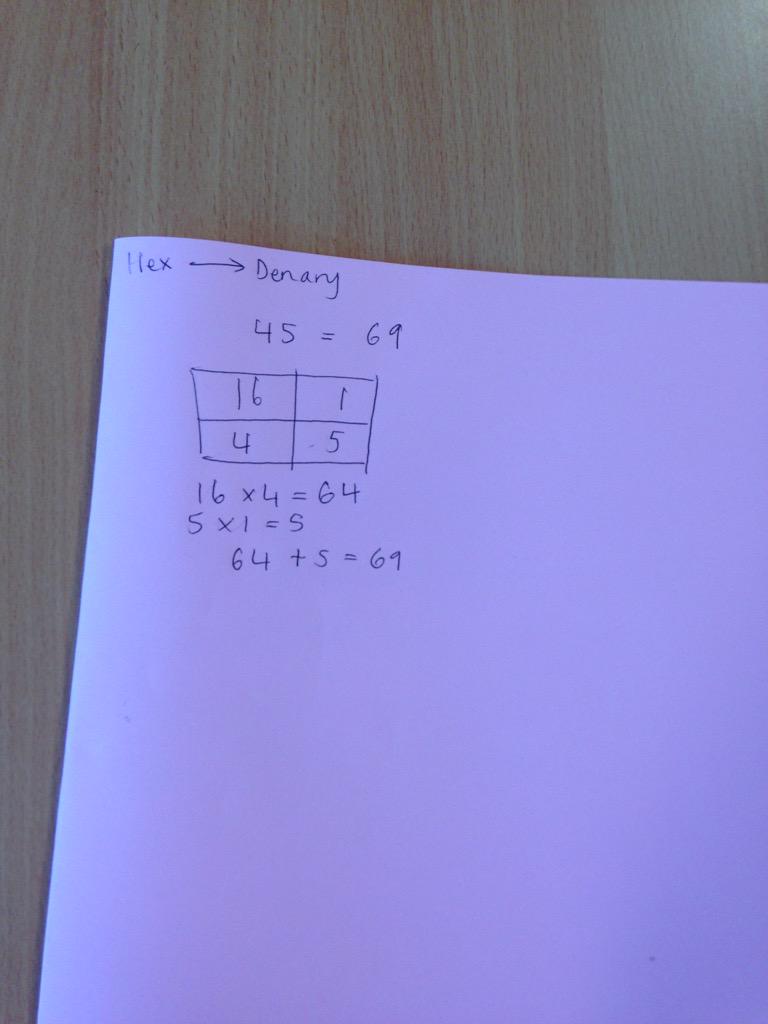 Hex → Denary
45 = 69
16 1
4 5
16 × 4 = 64
5 × 1 = 5
64 + 5 = 69